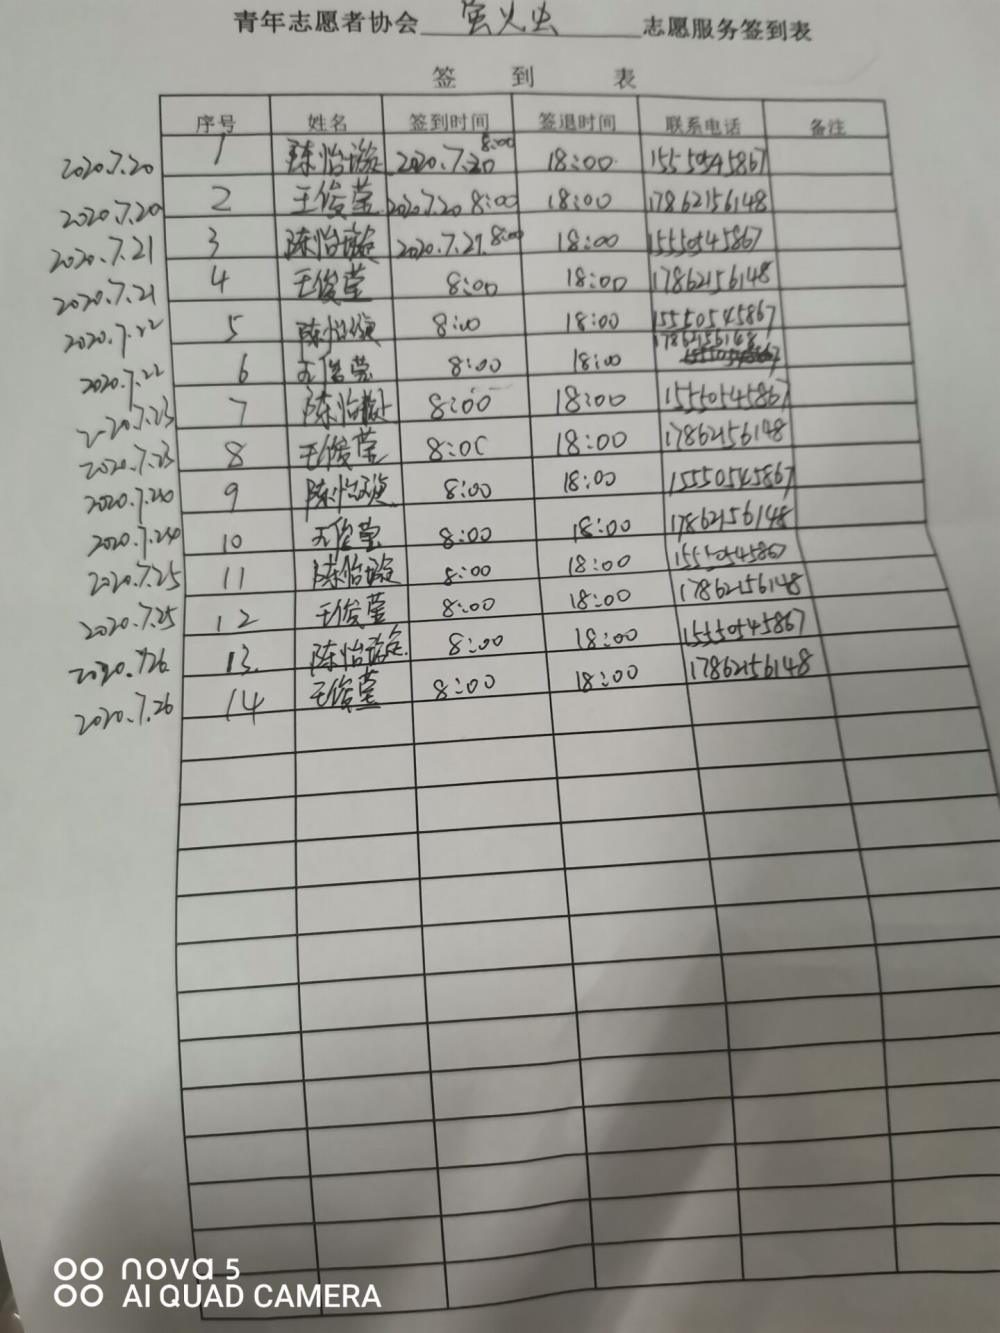 青年志愿者协会 萤火虫 志愿服务签到表
签 到 表
序号 姓名 签到时间 签退时间 联系电话 备注
2020.7.20 1 陈怡璇 2020.7.20 8:00 18:00 15550545867
2020.7.20 2 王俊莹 2020.7.20 8:00 18:00 17862156148
2020.7.21 3 陈怡璇 2020.7.21. 8:00 18:00 15550545867
2020.7.21 4 王俊莹 8:00 18:00 17862156148
2020.7.22 5 陈怡璇 8:00 18:00 15550545867
2020.7.22 6 王俊莹 8:00 18:00 17862156148
2020.7.23 7 陈怡璇 8:00 18:00 15550545867
2020.7.23 8 王俊莹 8:00 18:00 17862156148
2020.7.24 9 陈怡璇 8:00 18:00 15550545867
2020.7.24 10 王俊莹 8:00 18:00 17862156148
2020.7.25 11 陈怡璇 8:00 18:00 15550545867
2020.7.25 12 王俊莹 8:00 18:00 17862156148
2020.7.26 13. 陈怡璇 8:00 18:00 15550545867
2020.7.26 14 王俊莹 8:00 18:00 17862156148
nova 5
AI QUAD CAMERA